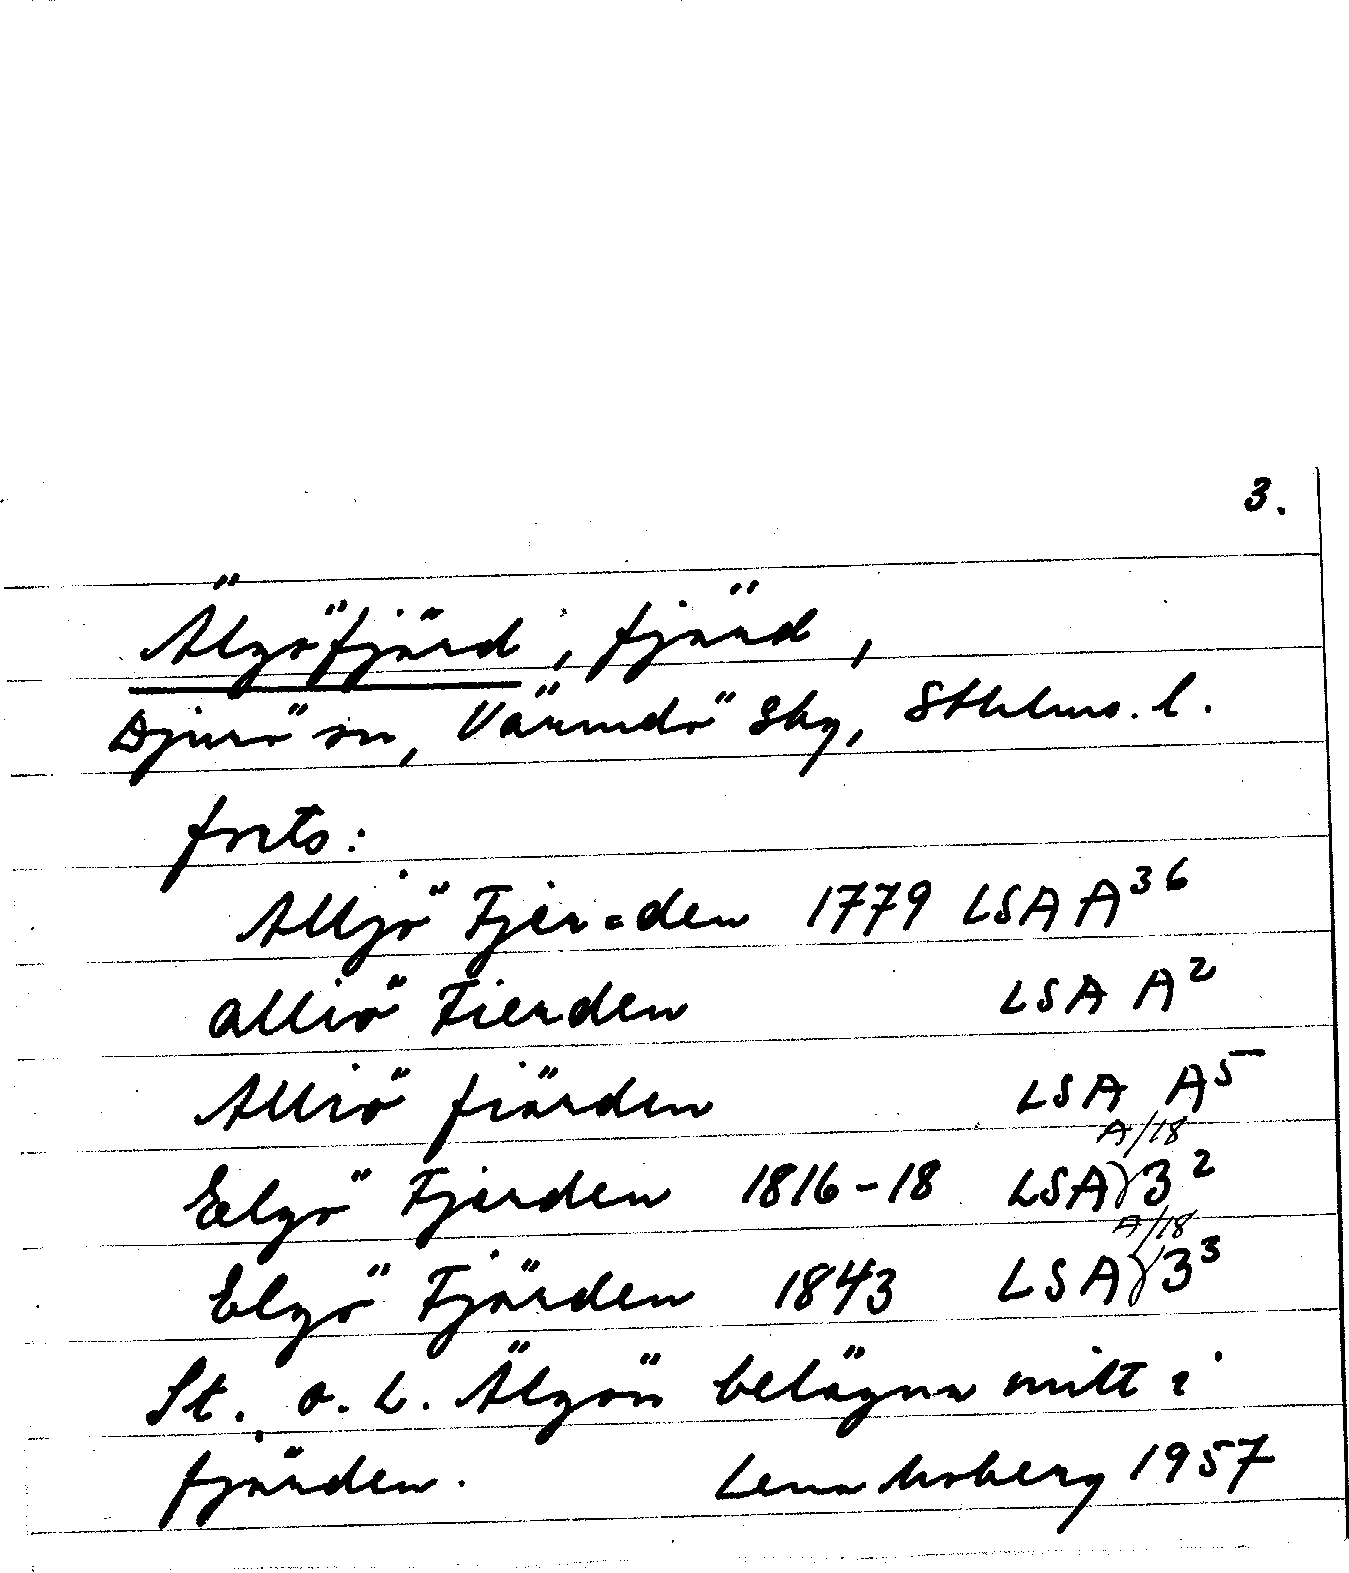 3.
Älgöfjärd, fjärd,
Djurö sn, Värmdö Skg, Sthlms. l.
forts:
Alljö Fjer=den 1779 LSA A36
Alliö Fierden LSA A2
Alliö fiärden LSA A5
A/18
Elgö Fjerden 1816-18 LSA 32
A/18
Elgö Fjärden 1843 LSA 33
St. o. L. Älgön belägna mitt i
fjärden. Lena Moberg 1957